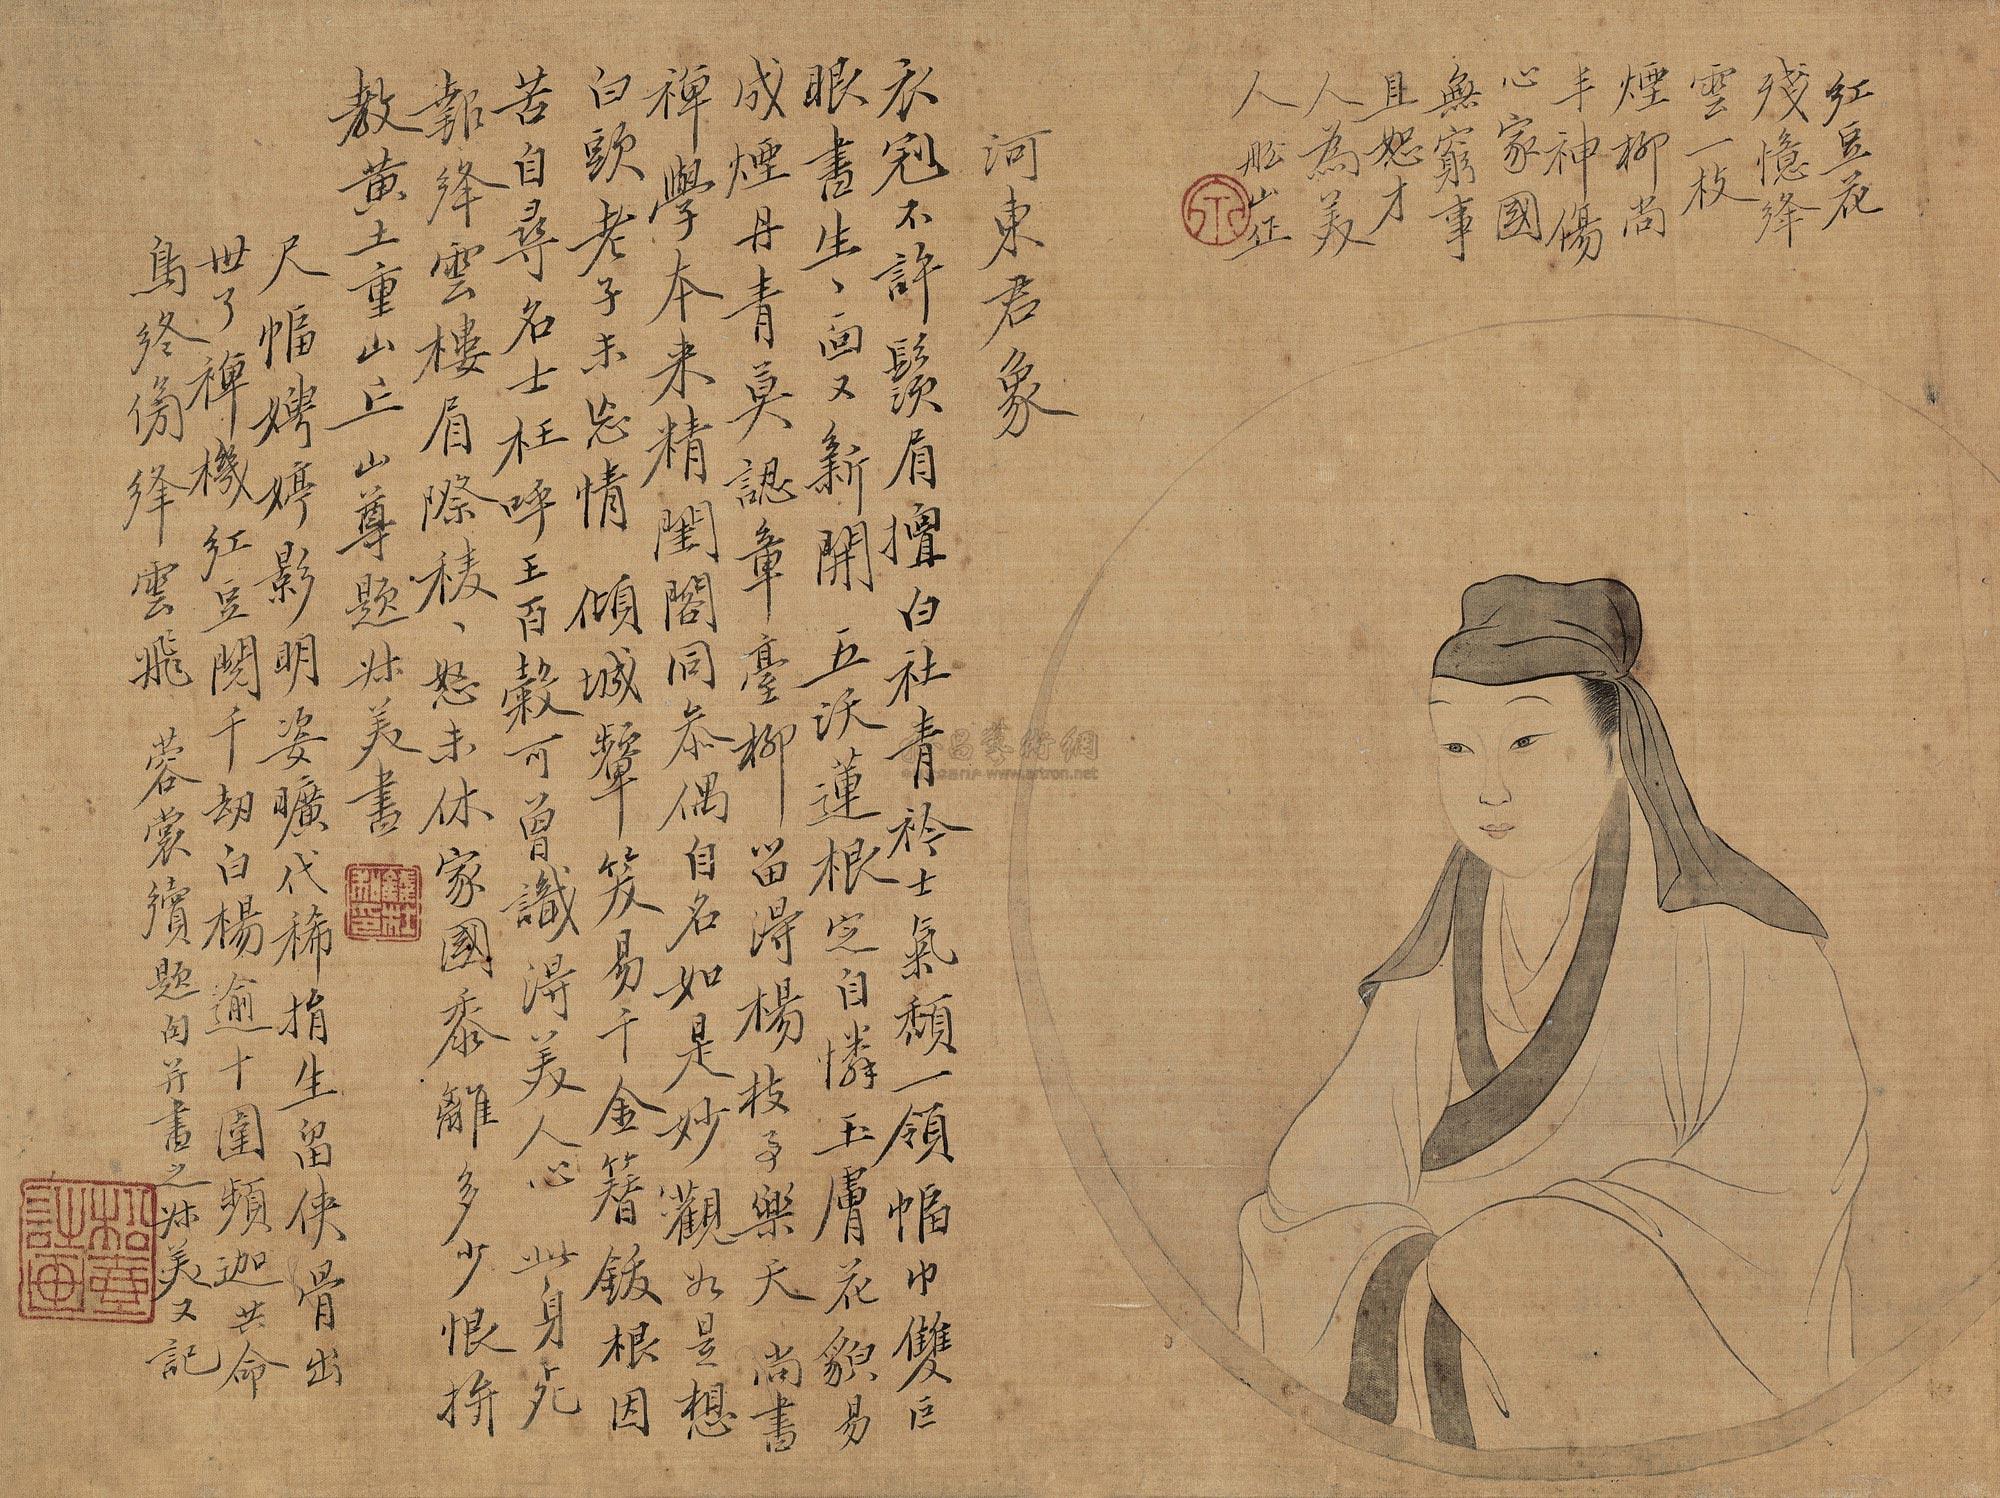 紅豆花
殘憶絳
雲一枝
煙柳尚
丰神傷
心家國
無窮事
且恕才
人為美
人 船山作
河東君象
衣冠不許鬚眉擅白社青衿士氣頹一領幅巾雙巨
眼書生生面又新開 五沃蓮根定自憐玉膚花貌易
成煙丹青莫認章臺柳留得楊枝事樂天 尚書
禪學本来精閨閣同參偶自名如是妙觀如是想
白頭老子未忘情 傾城顰笑易千金簪鈸根因
苦自尋名士枉呼王百穀可曾識得美人心 此身先
報絳雲樓眉際稜稜怒未休家國黍離多少恨拚
教黄土重山丘 山尊題 妹美書
尺幅娉婷影明姿曠代稀捐生留俠骨出
世了禪機紅豆閱千劫白楊逾十圍頻迦共命
鳥終傍絳雲飛 蓉裳續題句并書之妹美又記
www.artron.net